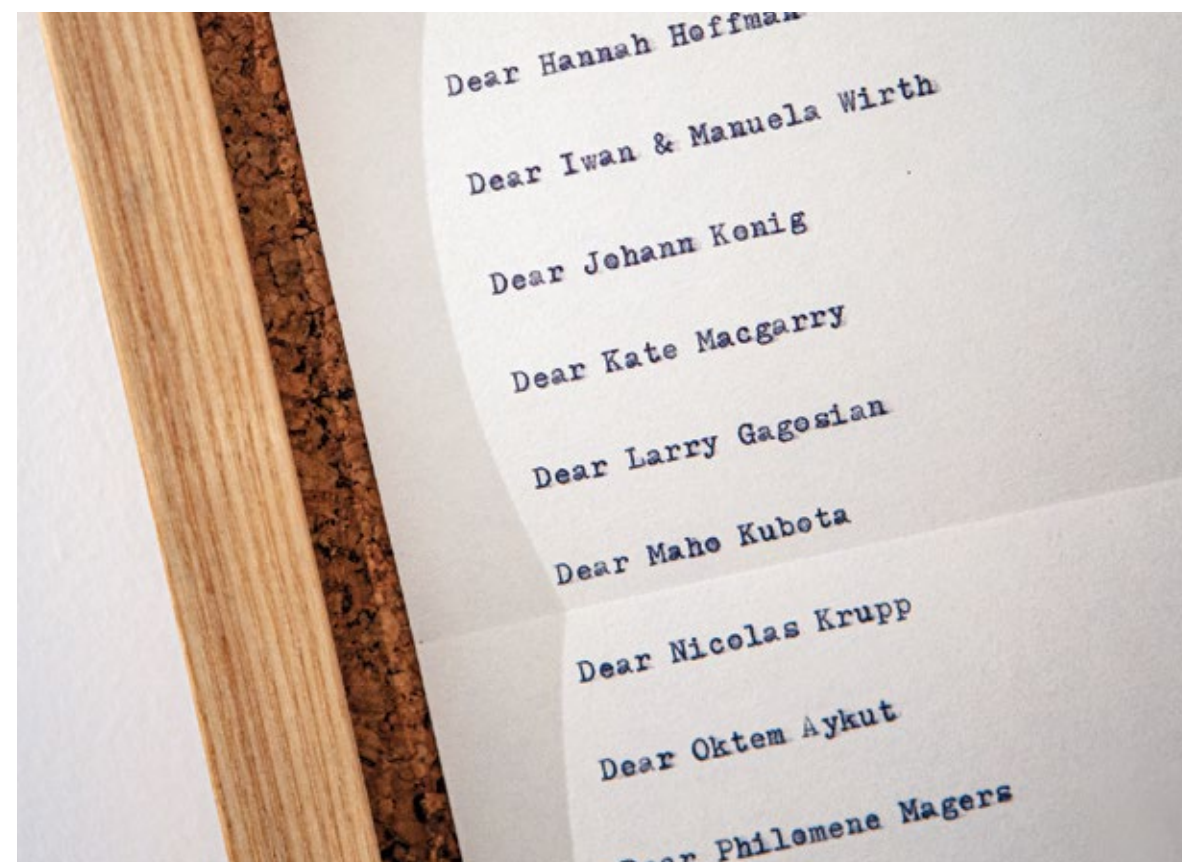 Dear Hannah Hoffman
Dear Iwan & Manuela Wirth
Dear Johann Konig
Dear Kate Macgarry
Dear Larry Gagosian
Dear Maho Kubota
Dear Nicolas Krupp
Dear Oktem Aykut
Dear Philomene Magers